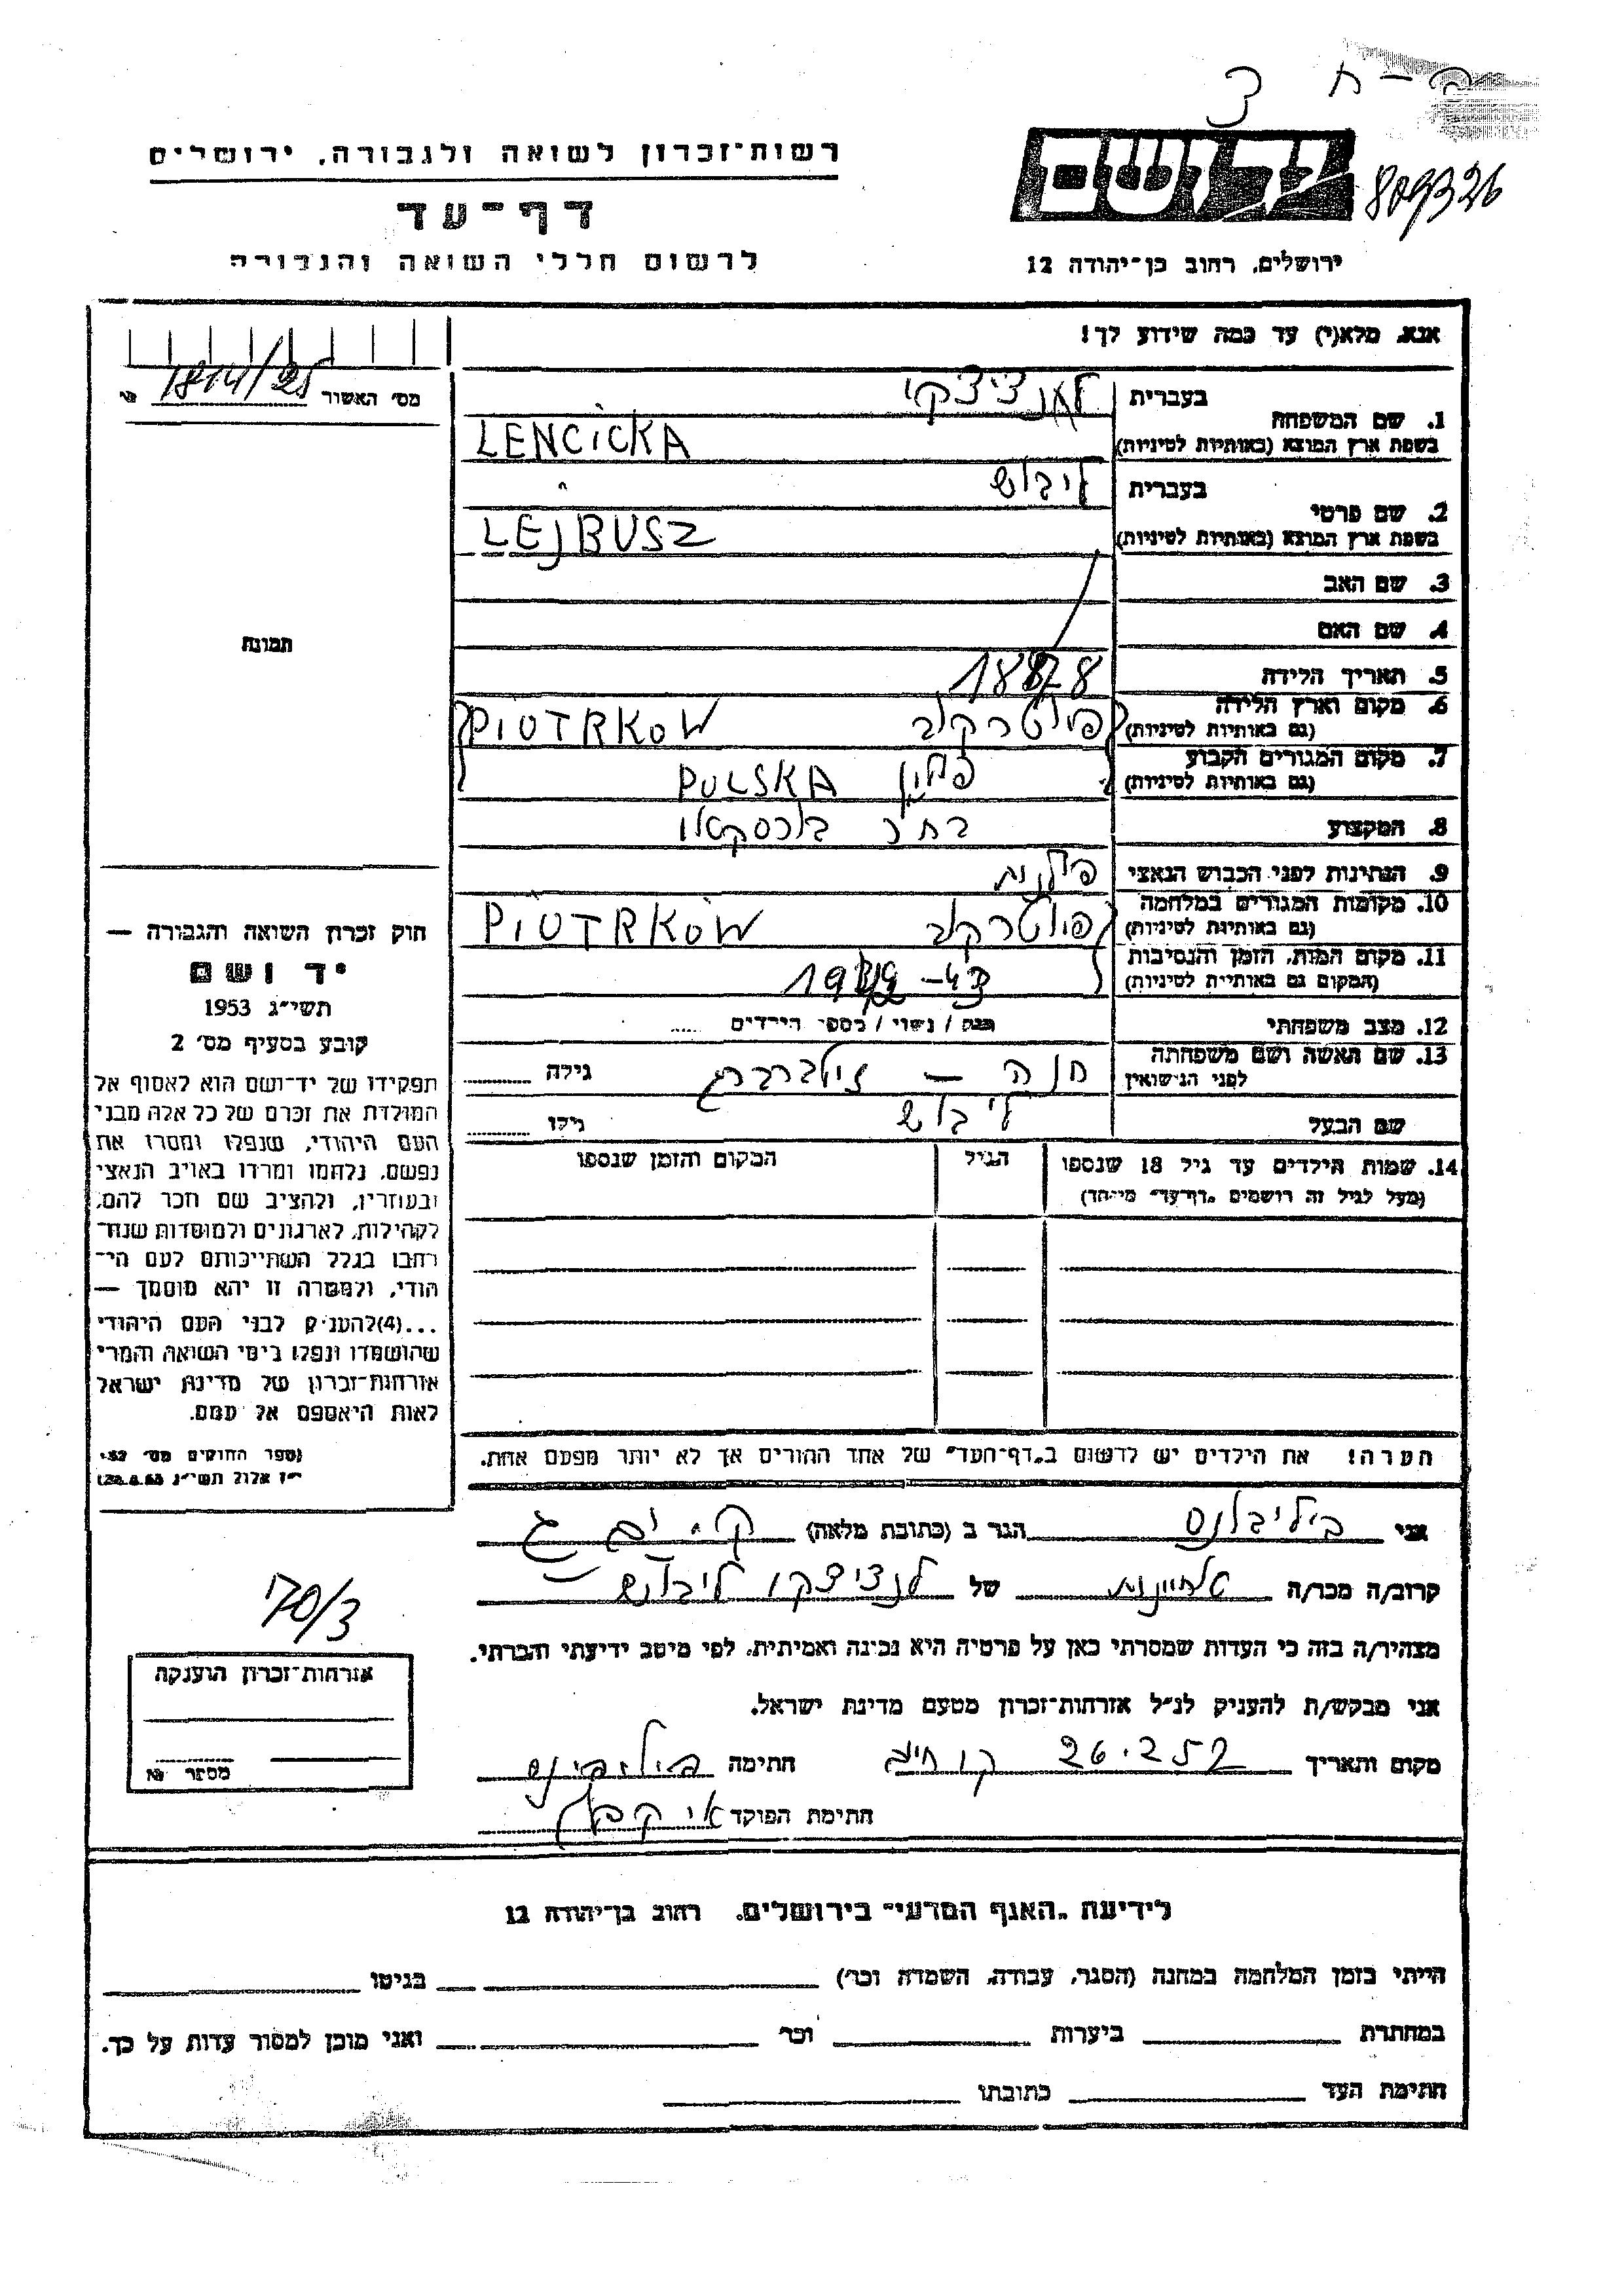 צ ח-פ
809326
רשות־זכרון לשואה ולגבורה, ירושלים
יד ושם
דף־עד
לרשום חללי השואה והגבורה
ירושלים, רחוב בן־יהודה 12
אנא, מלא(י) עד כמה שידוע לך!
מס׳ האשור №
1. שם המשפחה
בעברית
לאנציצקי
בשפת ארץ המוצא (באותיות לטיניות)
LENCICKA
2. שם פרטי
בעברית
ליבוש
בשפת ארץ המוצא (באותיות לטיניות)
LEJBUSZ
3. שם האב
4. שם האם
תמונה
5. תאריך הלידה
6. מקום וארץ הלידה
(גם באותיות לטיניות)
פיוטרקוב PIOTRKOW
7. מקום המגורים הקבוע
(גם באותיות לטיניות)
פולין POLSKA
8. המקצוע
9. הנתינות לפני הכבוש הנאצי
פולנית
10. מקומות המגורים במלחמה
(גם באותיות לטיניות)
פיוטרקוב PIOTRKOW
11. מקום המות, הזמן והנסיבות
(המקום גם באותיות לטיניות)
12. מצב משפחתי
רווק / נשוי / מספר הילדים .....
13. שם האשה ושם משפחתה
לפני הנישואין
חנה – זילברברג גילה
שם הבעל
ליבוש גילו
14. שמות הילדים עד גיל 18 שנספו
(מעל לגיל זה רושמים „דף־עד" מיוחד)
הגיל
המקום והזמן שנספו
הערה! את הילדים יש לרשום ב„דף־העד" של אחד ההורים אך לא יותר מפעם אחת.
חוק זכרון השואה והגבורה —
יד ושם
תשי״ג 1953
קובע בסעיף מס׳ 2
תפקידו של יד־ושם הוא לאסוף אל
המולדת את זכרם של כל אלה מבני
העם היהודי, שנפלו ומסרו את
נפשם, נלחמו ומרדו באויב הנאצי
ובעוזריו, ולהציב שם וזכר להם,
לקהילות, לארגונים ולמוסדות שנח־
רבו בגלל השתייכותם לעם הי־
הודי, ולמטרה זו יהא מוסמך —
...(4)להעניק לבני העם היהודי
שהושמדו ונפלו בימי השואה והמרי
אזרחות־זכרון של מדינת ישראל
לאות היאספם אל עמם.
(ספר החוקים מס׳ 132
י״ז אלול תשי״ג 28.8.53)
אני הגר ב (כתובת מלאה)
קרוב/ה מכר/ה של לנציצקי ליבוש
מצהיר/ה בזה כי העדות שמסרתי כאן על פרטיה היא נכונה ואמיתית, לפי מיטב ידיעתי והכרתי.
אני מבקש/ת להעניק לנ״ל אזרחות־זכרון מטעם מדינת ישראל.
מקום ותאריך חתימה
חתימת הפוקד
170/3
אזרחות־זכרון הוענקה
מספר №
לידיעת „האגף המדעי" בירושלים, רחוב בן־יהודה 12
הייתי בזמן המלחמה במחנה (הסגר, עבודה, השמדה וכו׳) בגיטו
במחתרת ביערות וכו׳ ואני מוכן למסור עדות על כך.
חתימת העד כתובתו